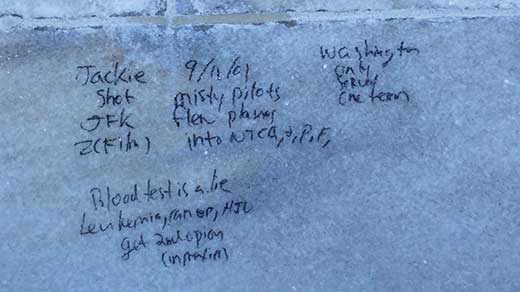 Jackie
Shot
JFK
Z(Film)
9/11/01
misty pilots
flew planes
into WTC
Washington
only
served
one term
Blood test is a lie
Leukemia, cancer, HIV
get 2nd opion